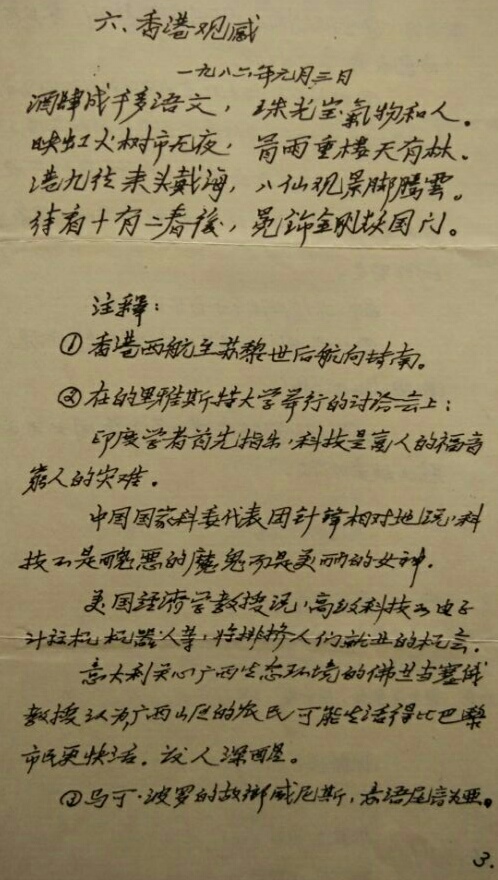 六、香港观感
一九八六年元月三日
酒肆成千多语文，珠光宝氣物和人。
映虹火树市无夜，雨重楼天有林。
港九往来头戴海，八仙观景脚腾雲。
待看十有二春後，金刚扶国门。
注释：
① 香港西航至苏黎世后航向转南。
② 在的里雅斯特大学举行的讨论会上：
印度学者首先指出，科技是富人的福音
穷人的灾难。
中国国家科委代表团针锋相对地说，科
技不是丑恶的魔鬼而是美丽的女神。
美国经济学教授说，高级科技如电子
计算机、机器人等，将排挤人们就业的机会。
意大利关心广西生态环境的佛朗古塞诚
教授认为，广西山区的农民可能生活得比巴黎
市民更快活。发人深醒。
③ 马可·波罗的故鄉威尼斯，意语尾音为亚。
3.